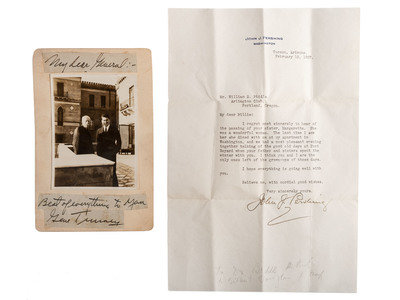 My dear General:-
Best of everything to you
Gene Tunney
JOHN J. PERSHING
WASHINGTON
Tucson, Arizona,
February 19, 
Mr. William D.
Arlington Club,
Portland, Oregon.
My dear
I regret most sincerely to hear of
the passing of your sister, Margaretta. She
was a wonderful woman. The last time I saw
her she dined with me at my apartment in
Washington, and we had a most pleasant evening
together talking of the good old days at Fort
Bayard when your father and sisters spent the
winter with you. I think you and I are the
only ones left of the grownups of those days.
I hope everything is going well with
you.
Believe me, with cordial good wishes,
Very sincerely yours,
John J. Pershing